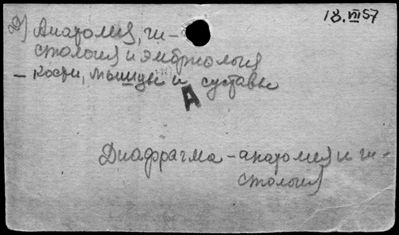 18.VII 57
2) Анатомия, ги-
стология и эмбриология
– кости, мышцы и суставы
А
Диафрагма – анатомия и ги-
стология